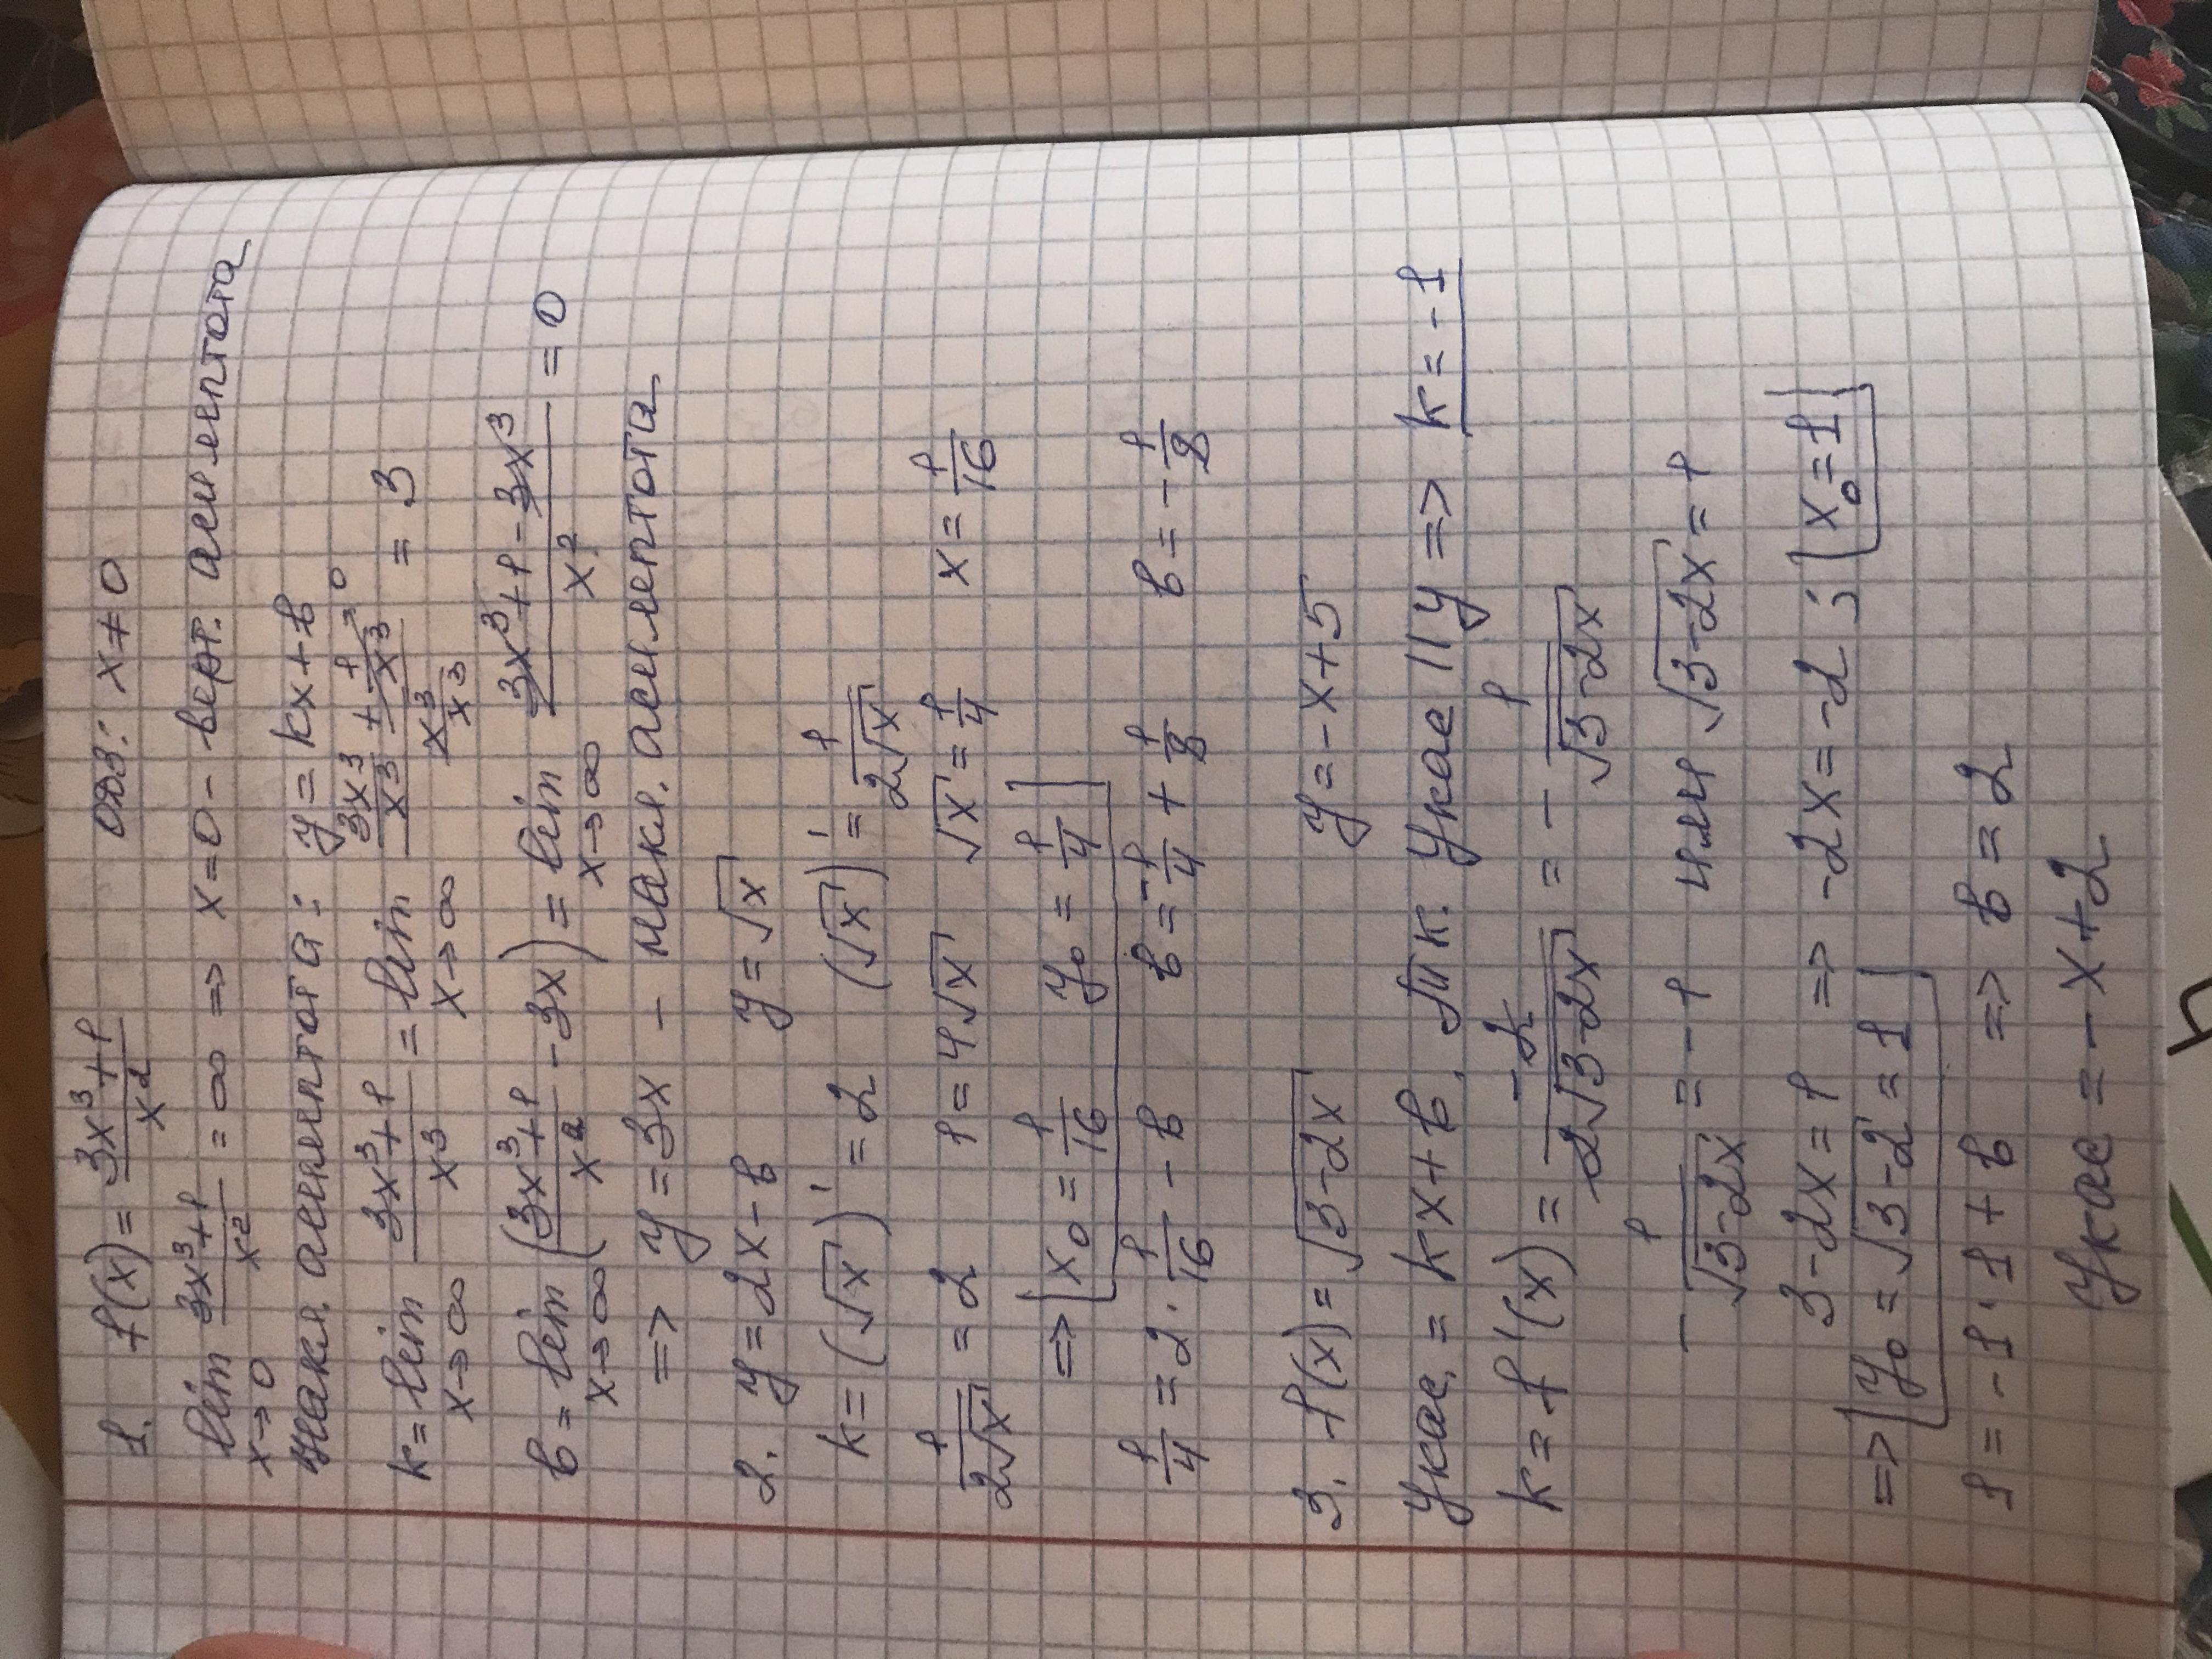 1. f(x) = (3x³+1)/x² ОДЗ: x≠0
lim x→0 (3x³+1)/x² = ∞ => x=0 - верт. асимптота
Накл. асимптота: y = kx+b
k = lim x→∞ (3x³+1)/x³ = lim x→∞ (3x³/x³ + 1/x³ →0)/(x³/x³) = 3
b = lim x→∞ ((3x³+1)/x² - 3x) = lim x→∞ (3x³+1-3x³)/x² = 0
=> y = 3x - накл. асимптота
2. y = 2x-b y = √x
k = (√x)' = 2 (√x)' = 1/(2√x)
1/(2√x) = 2 1 = 4√x √x = 1/4 x = 1/16
=> x₀ = 1/16 y₀ = 1/4
1/4 = 2·1/16 - b b = -1/4 + 1/8 b = -1/8
3. f(x) = √(3-2x) y = -x+5
Yкас. = kx+b. Т.к. Yкас || y => k = -1
k = f'(x) = -2/(2√(3-2x)) = - 1/√(3-2x)
- 1/√(3-2x) = -1 или √(3-2x) = 1
3-2x = 1 => -2x = -2 ; x₀ = 1
=> y₀ = √(3-2) = 1
1 = -1·1+b => b = 2
Yкас = -x+2